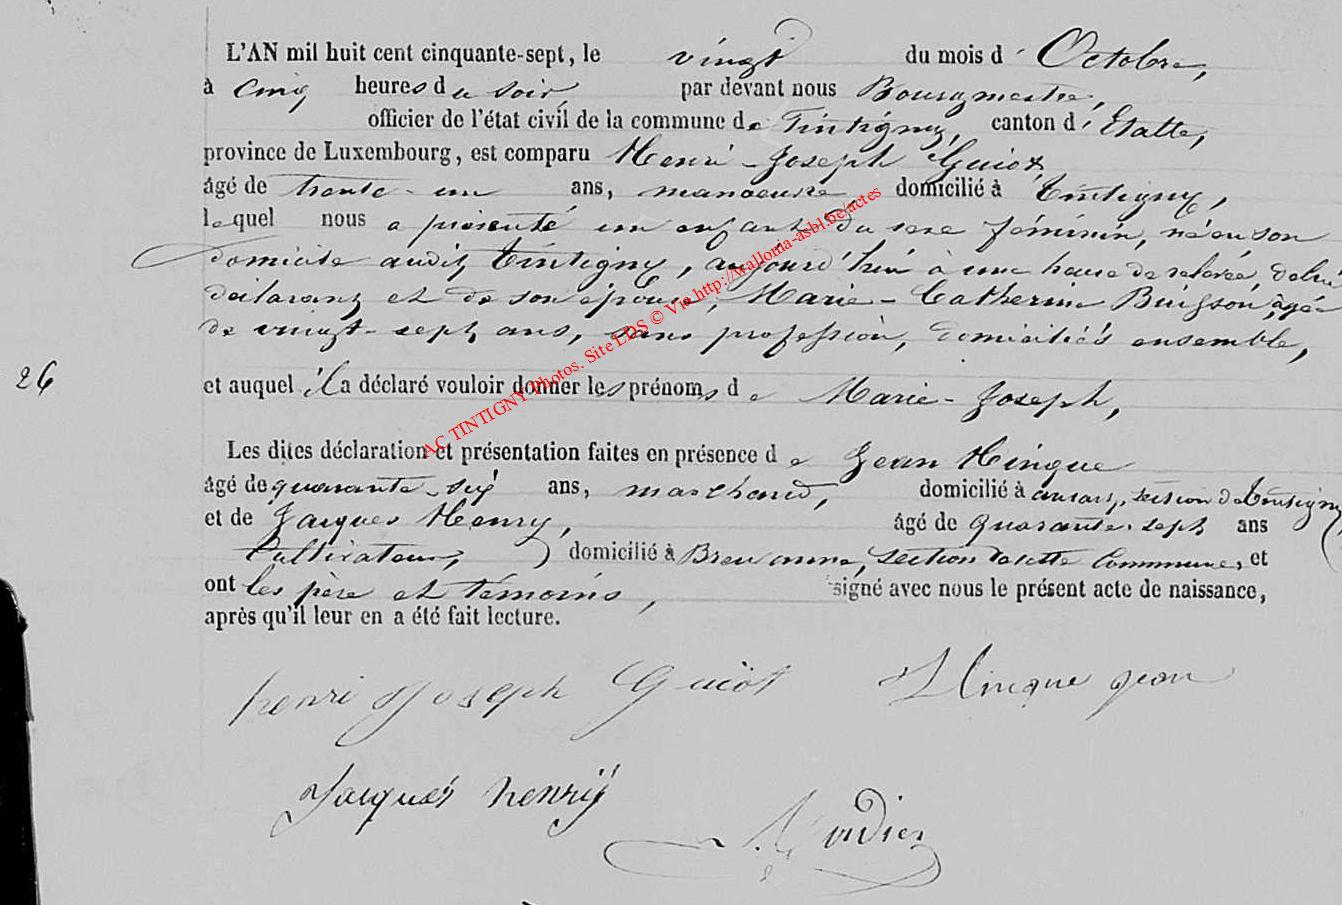 L'AN mil huit cent cinquante-sept, le vingt du mois d' Octobre,
à cinq heures du soir, par devant nous Bourgmestre,
officier de l'état civil de la commune de Tintigny, canton d' Etalle,
province de Luxembourg, est comparu Henri-Joseph Guiot,
âgé de trente-un ans, manoeuvre, domicilié à Tintigny,
lequel nous a présenté un enfant du sexe féminin, né en son
domicile audit Tintigny, aujourd'hui à une heure de relevée, de lui
déclarant et de son épouse, Marie-Catherine Buisson, âgée
de vingt-sept ans, sans profession, domiciliés ensemble,
26
et auquel il a déclaré vouloir donner les prénoms de Marie-Joseph,
Les dites déclaration et présentation faites en présence de Jean Hinque
âgé de quarante-six ans, marchand, domicilié à ansart, section de Tintigny,
et de Jacques Henry, âgé de quarante-sept ans
Cultivateur, domicilié à Breuvanne, section de cette Commune, et
ont les père et témoins, signé avec nous le présent acte de naissance,
après qu'il leur en a été fait lecture.
henri Joseph Guiot Hinque jean
Jacques henry
AC TINTIGNY Photos. Site LDS © Via http://wallonia-asbl.be/actes